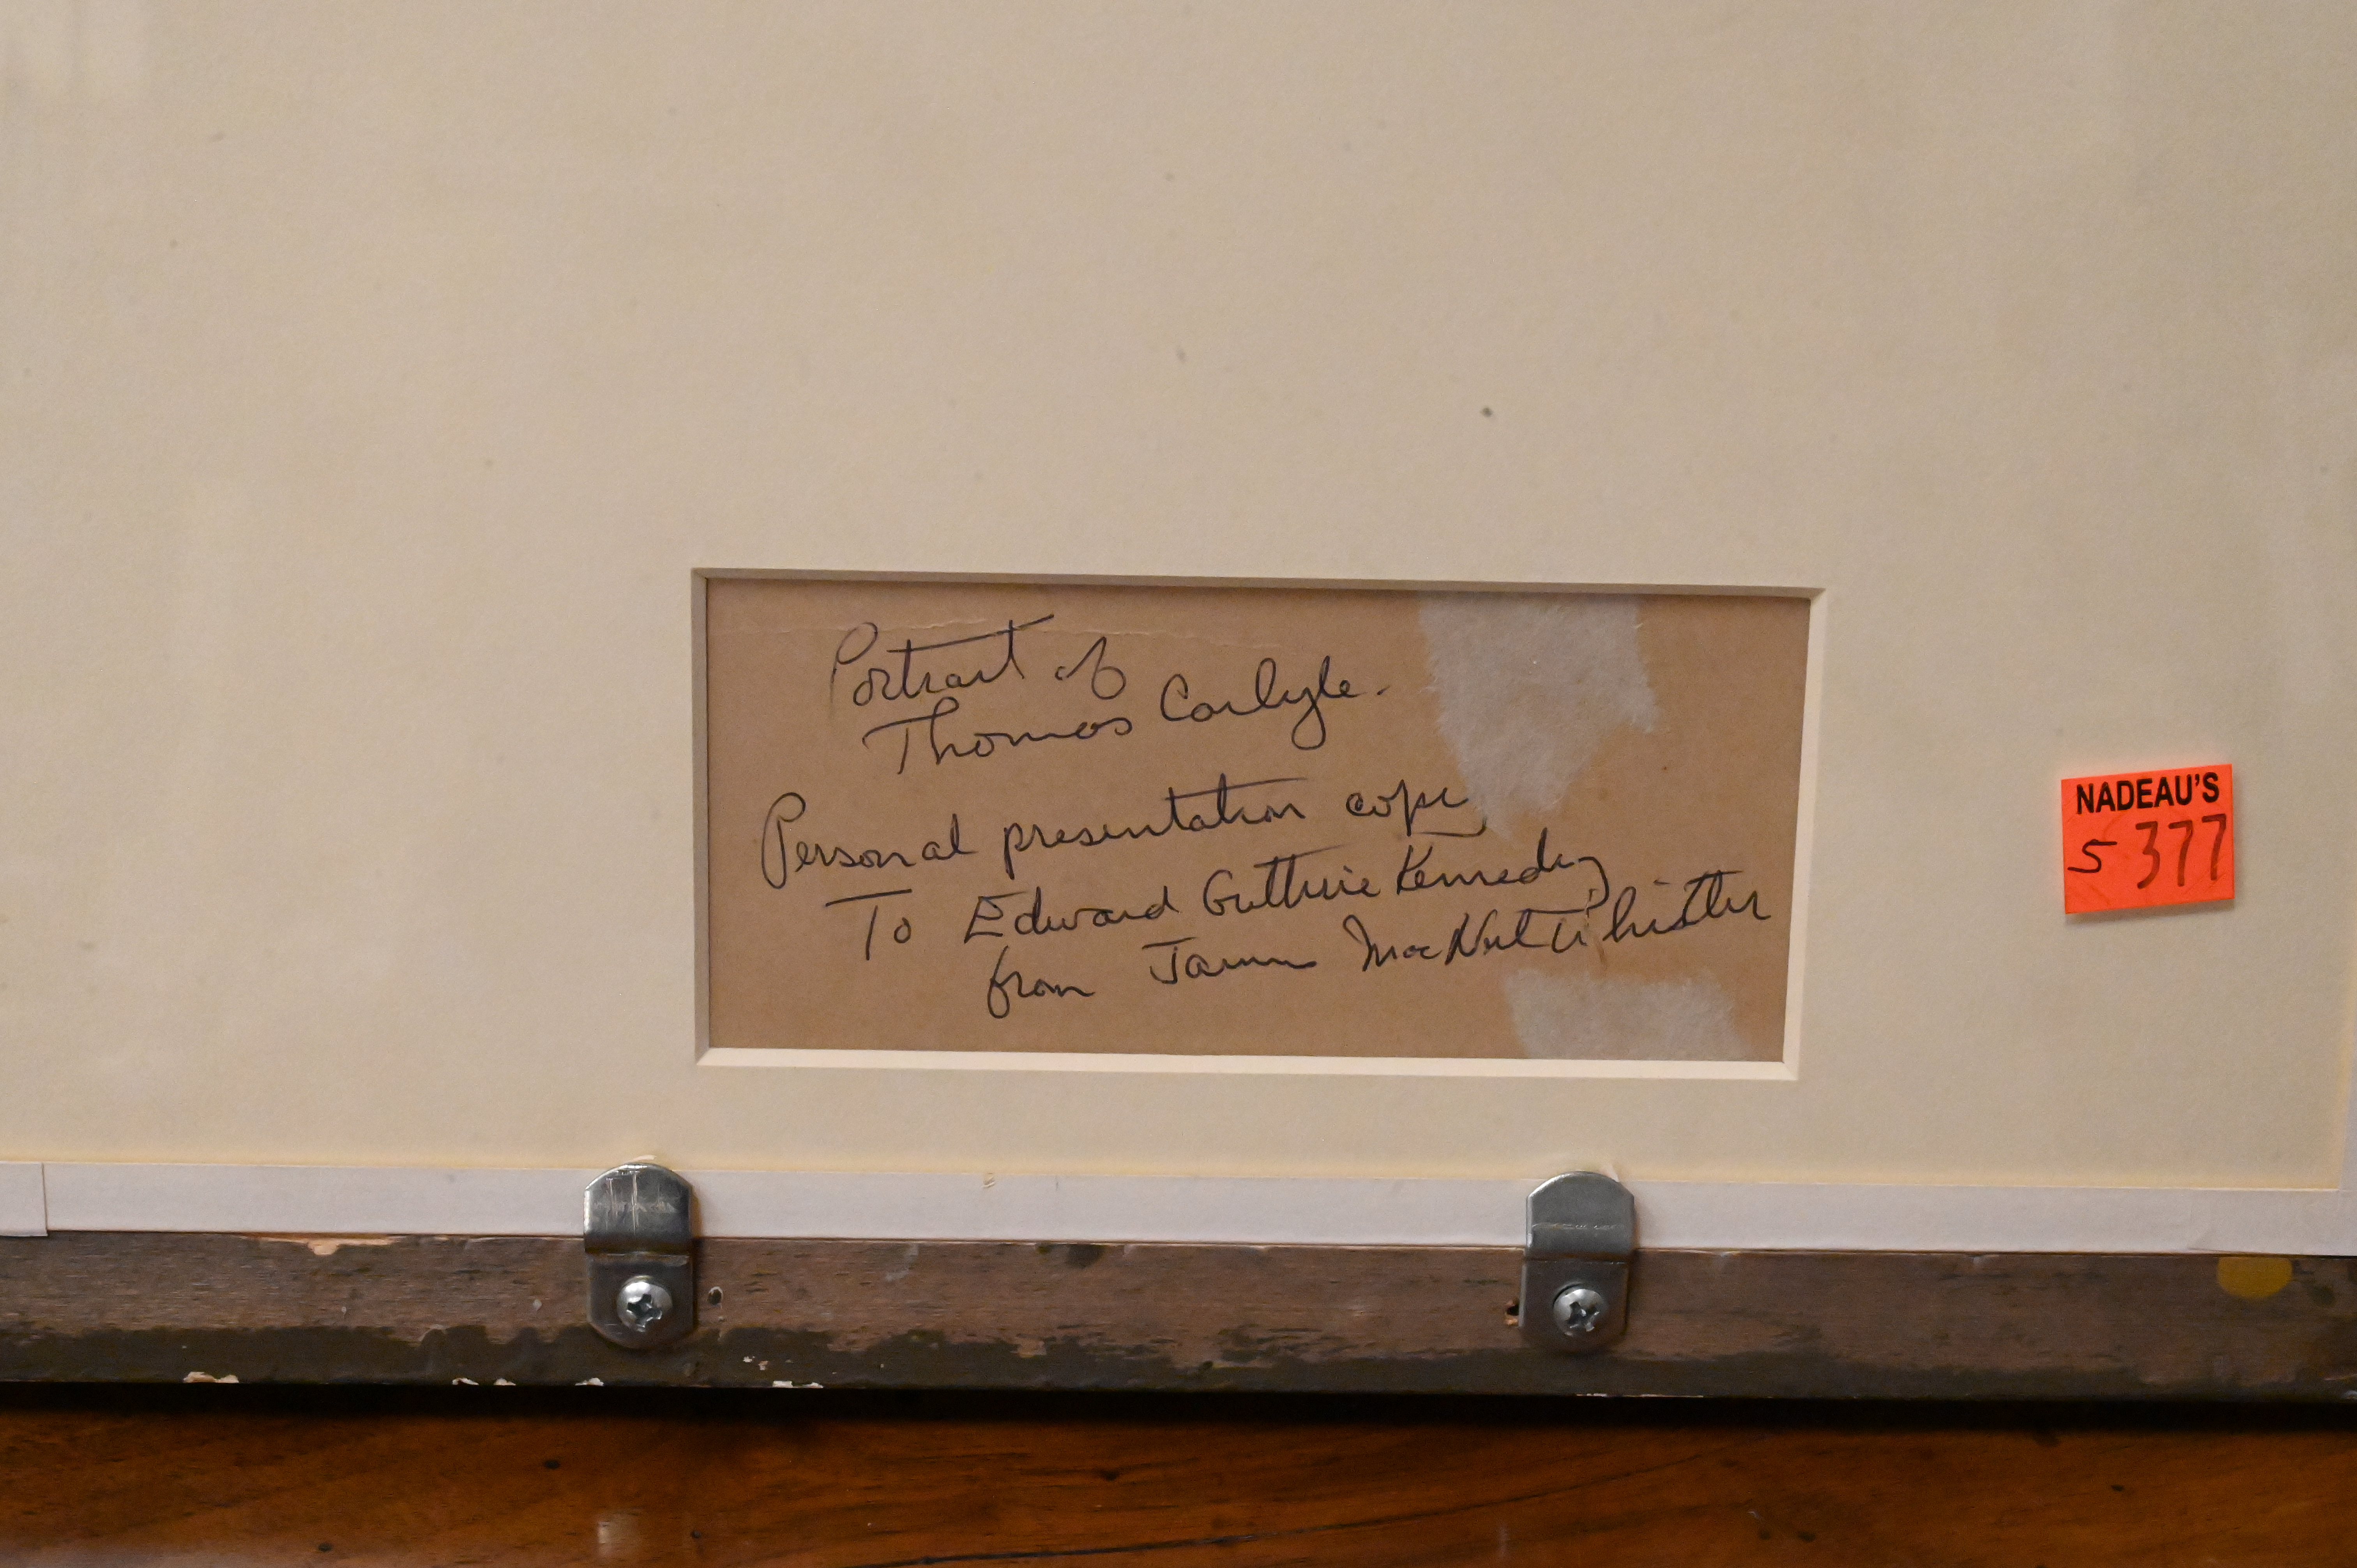 Portrait of
Thomas Carlyle.
Personal presentation copy
To Edward Guthrie Kennedy
from James MacNeil Whistler
NADEAU'S
S 377